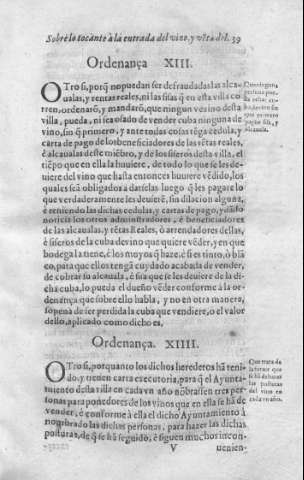 Sobre lo tocante à la entrada del vino, y vẽta del. 39
Ordenança XIII.
OTro si, porq̃ no puedan ser defraudadas las alca-
ualas, y rentas reales, ni las sisas q̃ en esta villa co-
rren, ordenarõ, y mandarõ, que ningun vezino desta
villa, pueda, ni sea osado de vender cuba ninguna de
vino, sin q̃ primero, y ante todas cosas tẽga cedula, y
carta de pago de los beneficiadores de las rẽtas reales,
è alcaualas deste miẽbro, y de los siseros desta villa, el
tiẽpo que en ella la huuiere, de todo lo que se les de-
uiere del vino que hasta entonces huuiere vẽdido, los
quales seã obligados a darselas luego q̃ les pagare lo
que verdaderamente les deuierẽ, sin dilacion alguna,
è teniendo las dichas cedulas, y cartas de pago, y dãdo
noticia los otros administradores, è beneficiadores
de las alcaualas, y rẽtas Reales, ò arrendadores dellas,
è siseros de la cuba de vino que quiere vẽder, y en que
bodega la tiene, è los moyos q̃ haze, è si es tinto, ò blã
co, para que ellos tengã cuydado acabada de vender,
de cobrar su alcauala, è sisa que se les deuiere de la di-
cha cuba, lo pueda el dueño vẽder conforme à la or-
denãça que sobre ello habla, y no en otra manera,
sopena de ser perdida la cuba que vendiere, o el valor
dello, aplicado como dicho es.
Que ninguna
persona pue-
da
sin
que primero
pague sisa, y
alcauala.
Ordenança. XIIII.
OTro si, por quanto los dichos herederos hã teni-
do, y tienen carta executoria, para q̃ el Ayunta-
miento desta villa en cada vn año nõbrassen tres per
sonas para ponedores de los vinos que en ella se hã de
vender, è conforme à ella el dicho Ayuntamiento à
nombrado las dichas personas, para hazer las dichas
posturas, de q̃ se hà seguido, è siguen muchos incon-
Que trata de
la forma que
se hà de hazer
las posturas
del vino en
cada vn año.
V uenien-